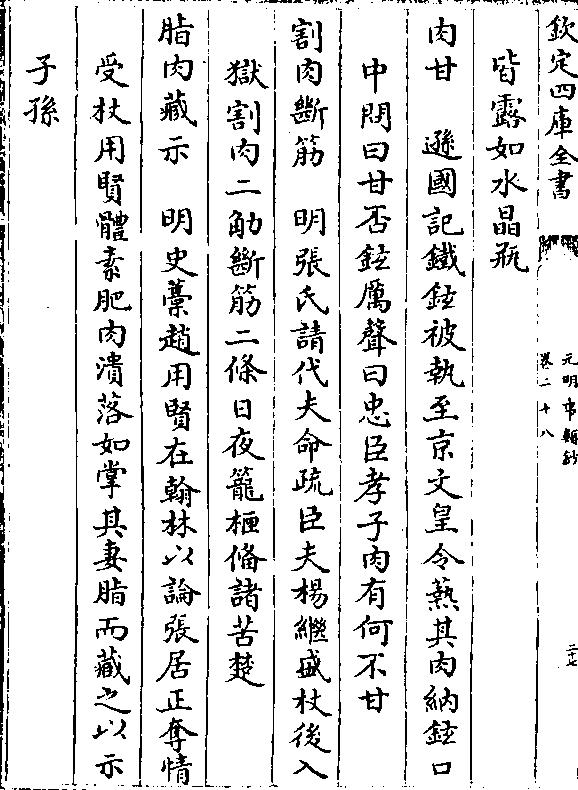 欽定四庫全書
元明事類鈔
卷二十八
二七
皆露如水晶瓶
肉甘　遜國記鐵鉉被執至京文皇令爇其肉納鉉口
中問曰甘否鉉厲聲曰忠臣孝子肉有何不甘
割肉斷筋　明張氏請代夫命疏臣夫楊繼盛杖後入
獄割肉二觔斷筋二條日夜籠柙偹諸苦楚
脂肉藏示　明史藁趙用賢在翰林以論張居正奪情
受杖用賢體素肥肉潰落如掌其妻脂而藏之以示
子孫